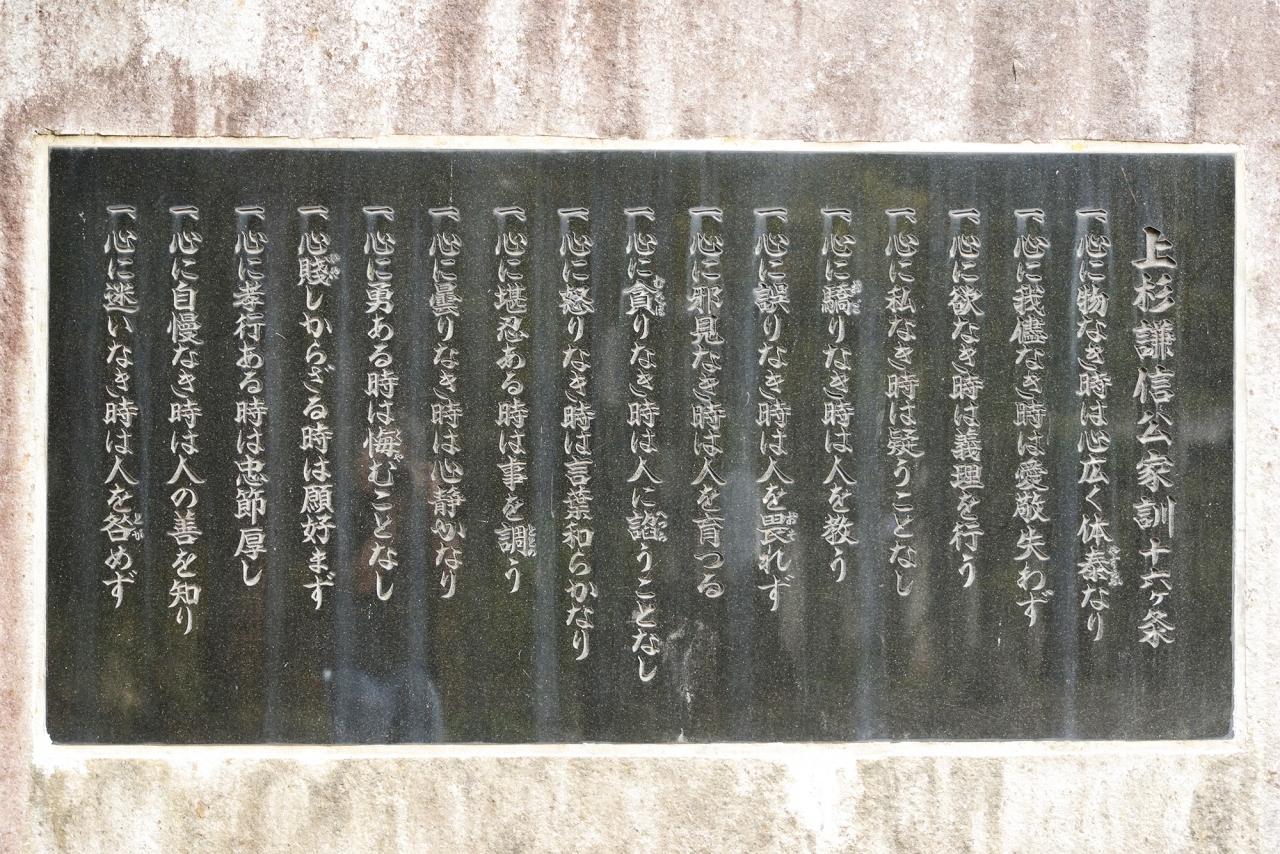 上杉謙信公家訓十六ヶ条
一心に物なき時は心広く体泰なり
一心に我儘なき時は愛敬失わず
一心に欲なき時は義理を行う
一心に私なき時は疑うことなし
一心に驕りなき時は人を教う
一心に誤りなき時は人を畏れず
一心に邪見なき時は人を育つる
一心に貪りなき時は人に諂うことなし
一心に怒りなき時は言葉和らかなり
一心に堪忍ある時は事を調う
一心に曇りなき時は心静かなり
一心に勇ある時は悔むことなし
一心賤しからざる時は願好まず
一心に孝行ある時は忠節厚し
一心に自慢なき時は人の善を知り
一心に迷いなき時は人を咎めず